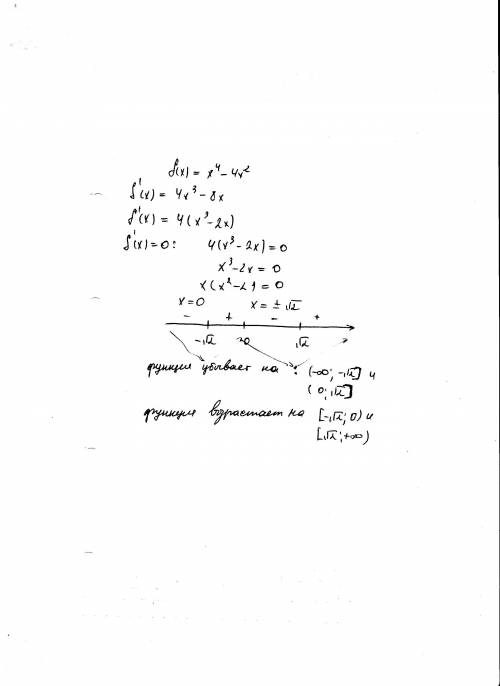 f(x) = x⁴ - 4x²
f'(x) = 4x³ - 8x
f'(x) = 4(x³ - 2x)
f'(x) = 0: 4(x³ - 2x) = 0
x³ - 2x = 0
x(x² - 2) = 0
x = 0 x = ± √2
- + - +
-√2 0 √2
функция убывает на : (-∞; -√2] и
(0; √2]
функция возрастает на [-√2; 0) и
[√2; +∞)